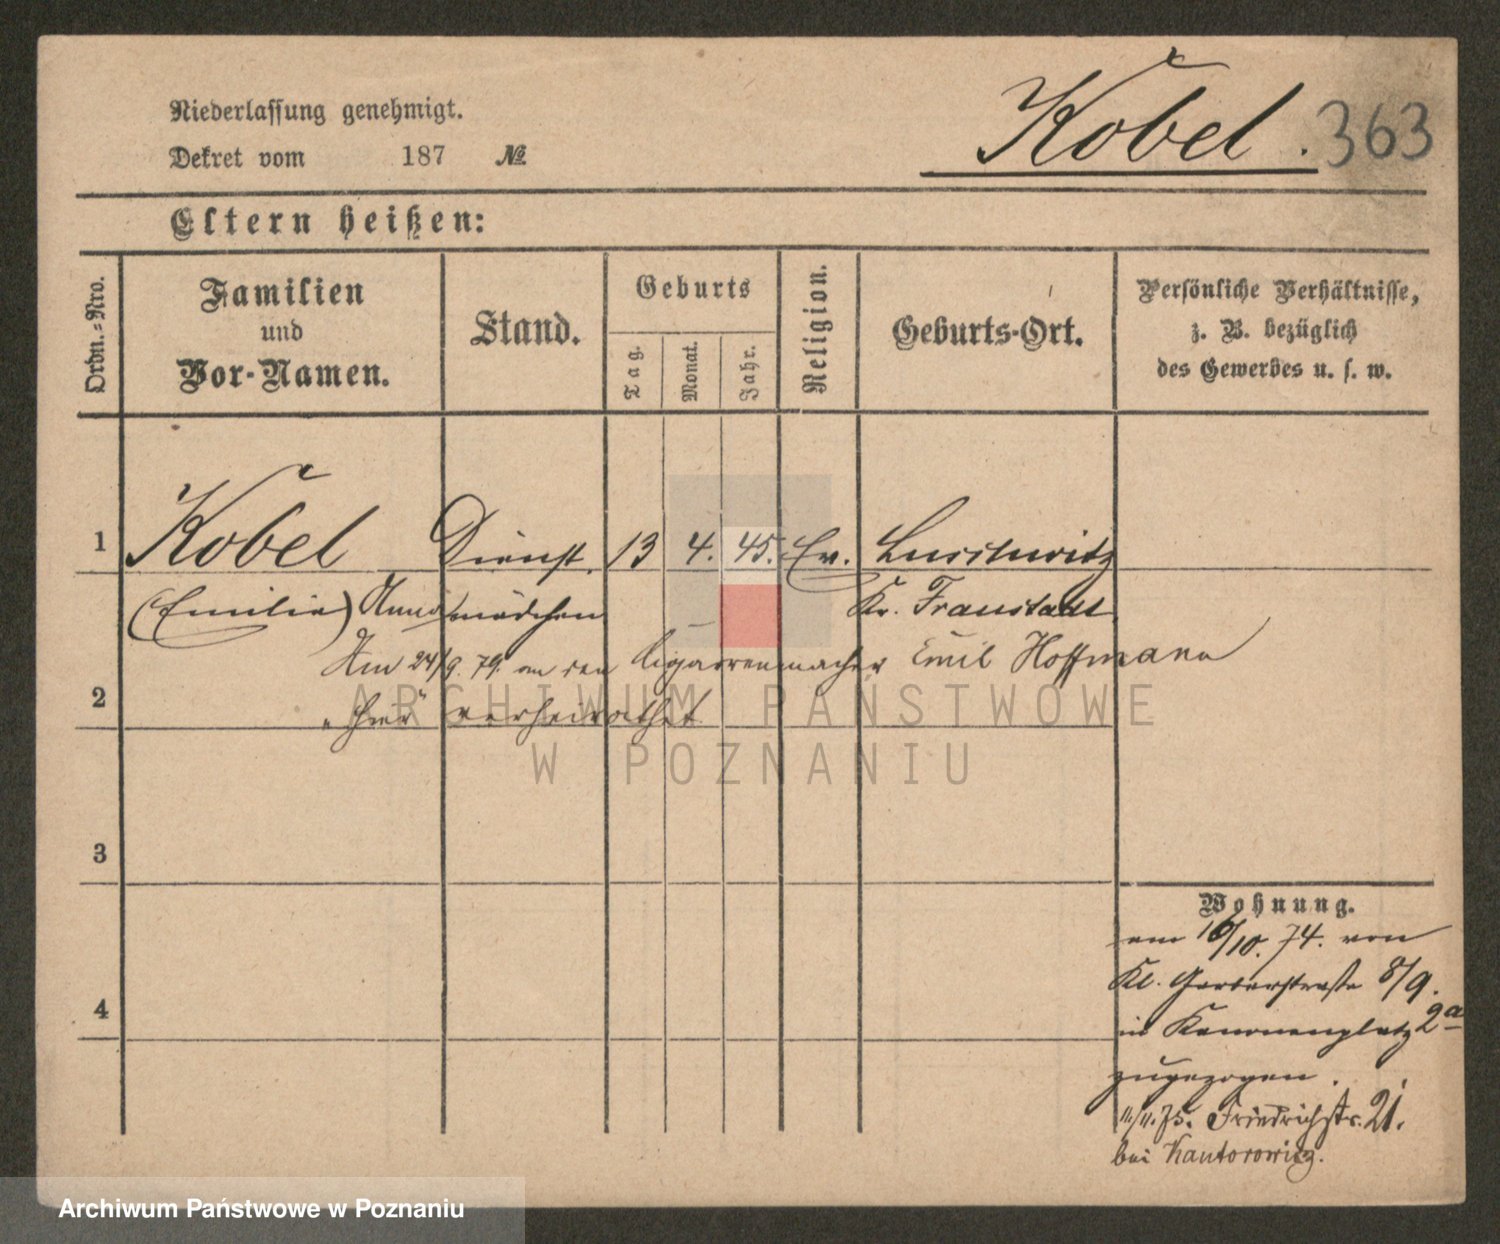 Niederlassung genehmigt.
Dekret vom 187 №
Kobel. 363
Eltern heißen:
Ordn.-Nro.
Familien
und
Vor-Namen.
Stand.
Geburts
Tag.
Monat.
Jahr.
Religion.
Geburts-Ort.
Persönliche Verhältnisse,
z. B. bezüglich
des Gewerbes u. s. w.
1 Kobel Dienst 13 4. 45. Ev.
(Emilie) Anna mädchen Kr. Fraustadt
Am 24/9. 79. an den Cigarrenmacher Emil Hoffmann
2 hier verheirathet
3
4
Wohnung.
am 16/10. 74. von
Kl. Gerberstraße 8/9.
in Kanonenplatz 2a
zugezogen.
11/11. 75. Friedrichstr. 21.
bei Kantorowicz.
ARCHIWUM PAŃSTWOWE
W POZNANIU
Archiwum Państwowe w Poznaniu